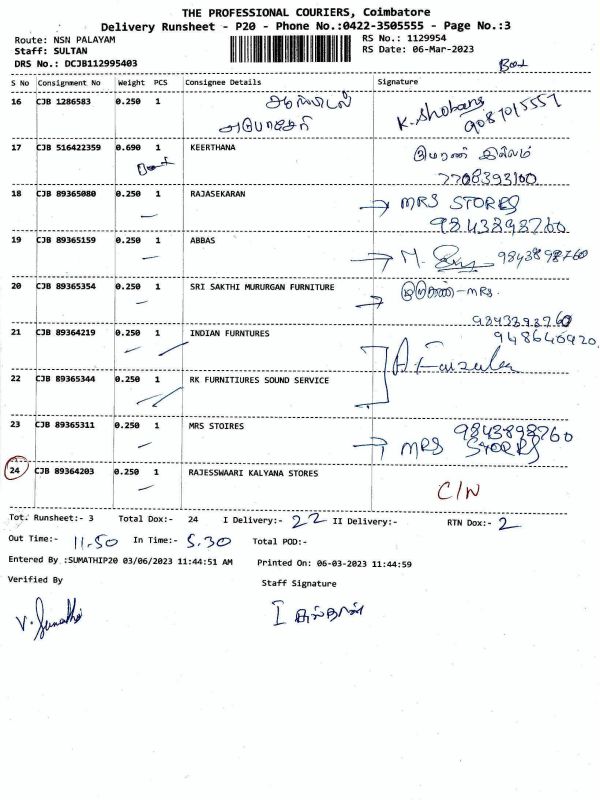 THE PROFESSIONAL COURIERS, Coimbatore
Delivery Runsheet - P20 - Phone No.:0422-3505555 - Page No.:3
Route: NSN PALAYAM RS No.: 1129954
Staff: SULTAN RS Date: 06-Mar-2023
DRS No.: DCJB112995403
S No Consignment No Weight PCS Consignee Details Signature
16 CJB 1286583 0.250 1 K. Shobana
9087015557
17 CJB 516422359 0.690 1 KEERTHANA இல்லம்
7708393100
18 CJB 89365080 0.250 1 RAJASEKARAN MRS STORES
9843898760
19 CJB 89365159 0.250 1 ABBAS M. 9843898760
20 CJB 89365354 0.250 1 SRI SAKTHI MURURGAN FURNITURE -MRS.
9843898760
21 CJB 89364219 0.250 1 INDIAN FURNTURES
22 CJB 89365344 0.250 1 RK FURNITIURES SOUND SERVICE
23 CJB 89365311 0.250 1 MRS STOIRES 9843898760
MRS STORES
24 CJB 89364203 0.250 1 RAJESSWAARI KALYANA STORES C/N
Tot. Runsheet:- 3 Total Dox:- 24 I Delivery:- 22 II Delivery:- RTN Dox:- 2
Out Time:- 11.50 In Time:- 5.30 Total POD:-
Entered By :SUMATHIP20 03/06/2023 11:44:51 AM Printed On: 06-03-2023 11:44:59
Verified By Staff Signature
V. Sumathi I சுல்தான்